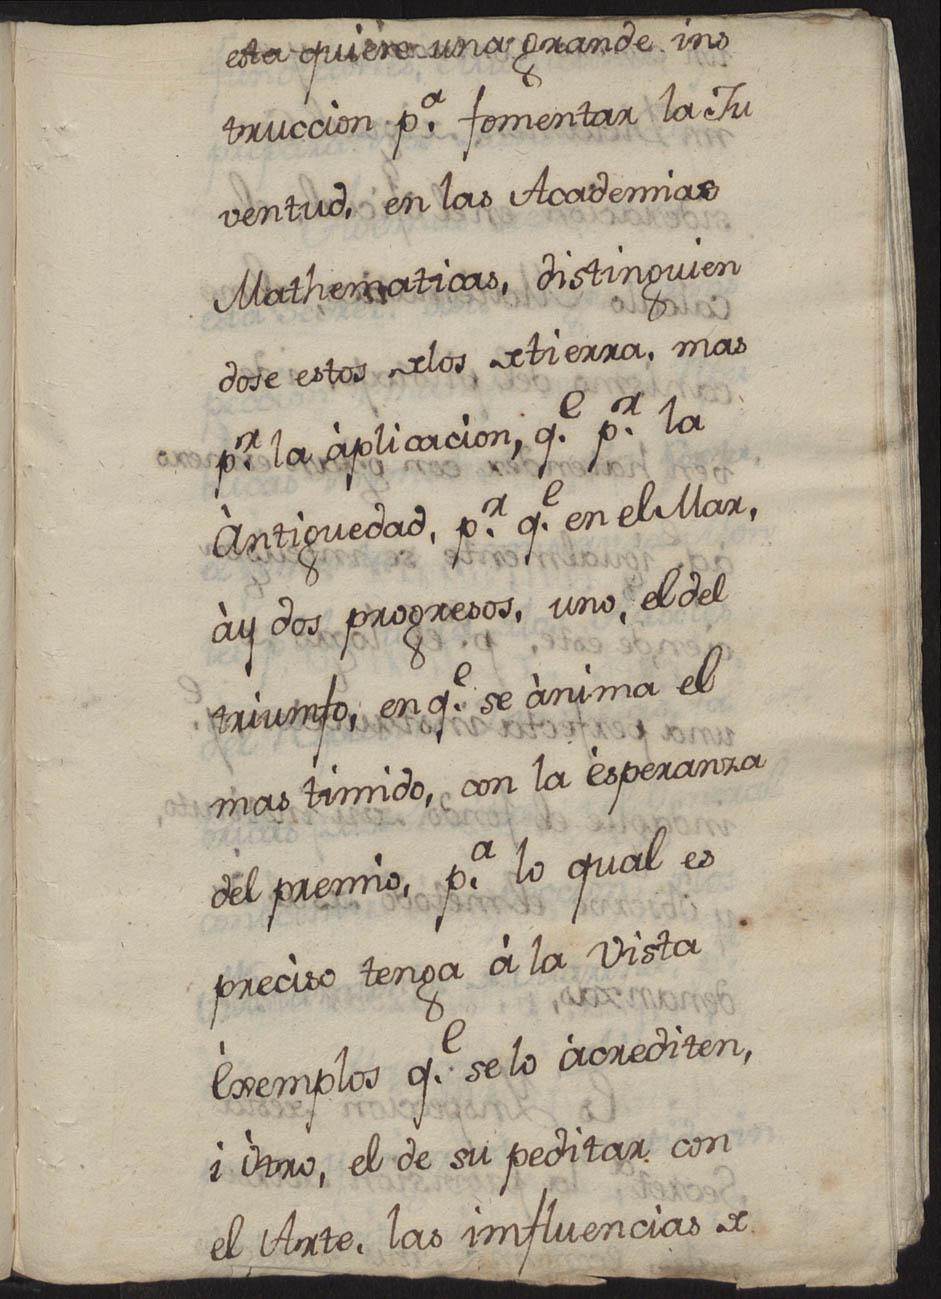 esta quiere una grande ins
truccion p.ª fomentar la Ju
ventud, en las Academias
Mathematicas, distinguien
dose estos xlos xtierra, mas
p.r la àplicacion, q.e p.r la
Àntiguedad, p.r q.e en el Mar,
ày dos progresos, uno, el del
triumfo, en q.e se ànima el
mas timido, con la èsperanza
del premio, p.ª lo qual es
preciso tenga à la vista
Èxemplos q.e se lo àcrediten,
i Òtro, el de su peditar con
el Arte, las imfluencias x